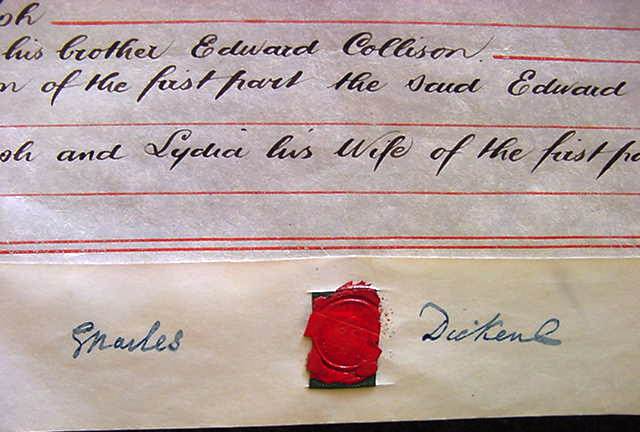 ph
his brother Edward Collison.
n of the first part the said Edward
ph and Lydia his Wife of the first pa
Charles Dickens